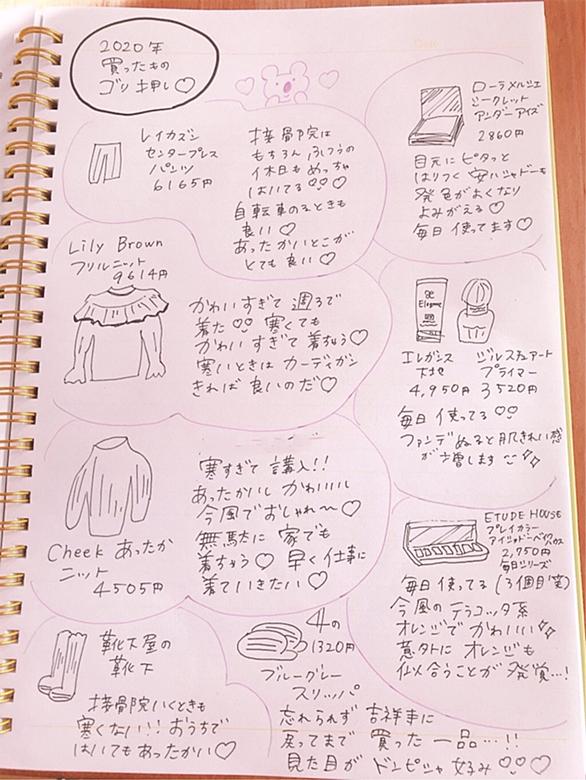 2020年
買ったもの
ゴリ押し♡
レイカズン
センタープレス
パンツ
6165円
接骨院は
もちろん ふつうの
休日も めっちゃ
はいてる♡♡♡
自転車のるときも
良い♡
あったかいとこが
とても良い♡
ローラメルシエ
シークレット
アンダーアイズ
2860円
目元に ピタッと
はりつく 安いシャドーも
発色がよくなり
よみがえる♡
毎日 使ってます♡
Lily Brown
フリルニット
9614円
かわいすぎて 週3で
着た♡♡ 寒くても
かわいすぎて 着ちゃう♡
寒いときは カーディガン
きれば 良いのだ♡
Elégance
エレガンス
下地
4,950円
ジルスチュアート
プライマー
3520円
毎日 使ってる♡♡
ファンデぬると 肌きれい感
が増します
Cheek あったか
ニット
4505円
寒すぎて 購入!!
あったかいし かわいいし
今風で おしゃれ〜♡
無駄に 家でも
着ちゃう♡ 早く 仕事に
着ていきたい♡
ETUDE HOUSE
プレイカラー
アイシャドー
2,750円
毎日シリーズ
毎日 使ってる (3個目笑)
今風の テラコッタ系
オレンジで かわいい
意外に オレンジも
似合うことが 発覚...!
靴下屋の
靴下
接骨院いくときも
寒くない!! おうちで
はいても あったかい♡
4の
1320円
ブルーグレー
スリッパ
忘れられず 吉祥寺に
戻ってまで 買った 一品...!!
見た目が ドンピシャ 好み♡♡♡